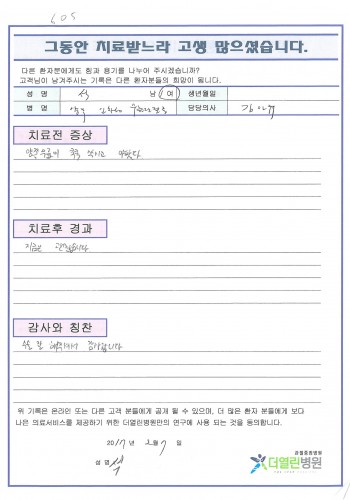 605
그동안 치료받느라 고생 많으셨습니다.
다른 환자분에게도 힘과 용기를 나누어 주시겠습니까?
고객님이 남겨주시는 기록은 다른 환자분들의 희망이 됩니다.
성 명 석 남 여 생년월일
병 명 양쪽 담당의사
치료전 증상
양쪽무릎이 쑥쑥
치료후 경과
지금은 괜찮습니다
감사와 칭찬
수술 잘 해주셔서 감사합니다
위 기록은 온라인 또는 다른 고객 분들에게 공개 될 수 있으며, 더 많은 환자 분들에게 보다
나은 의료서비스를 제공하기 위한 더열린병원만의 연구에 사용 되는 것을 동의합니다.
2017 년 2 월 7 일
성 명 석
관절중점병원
더열린병원